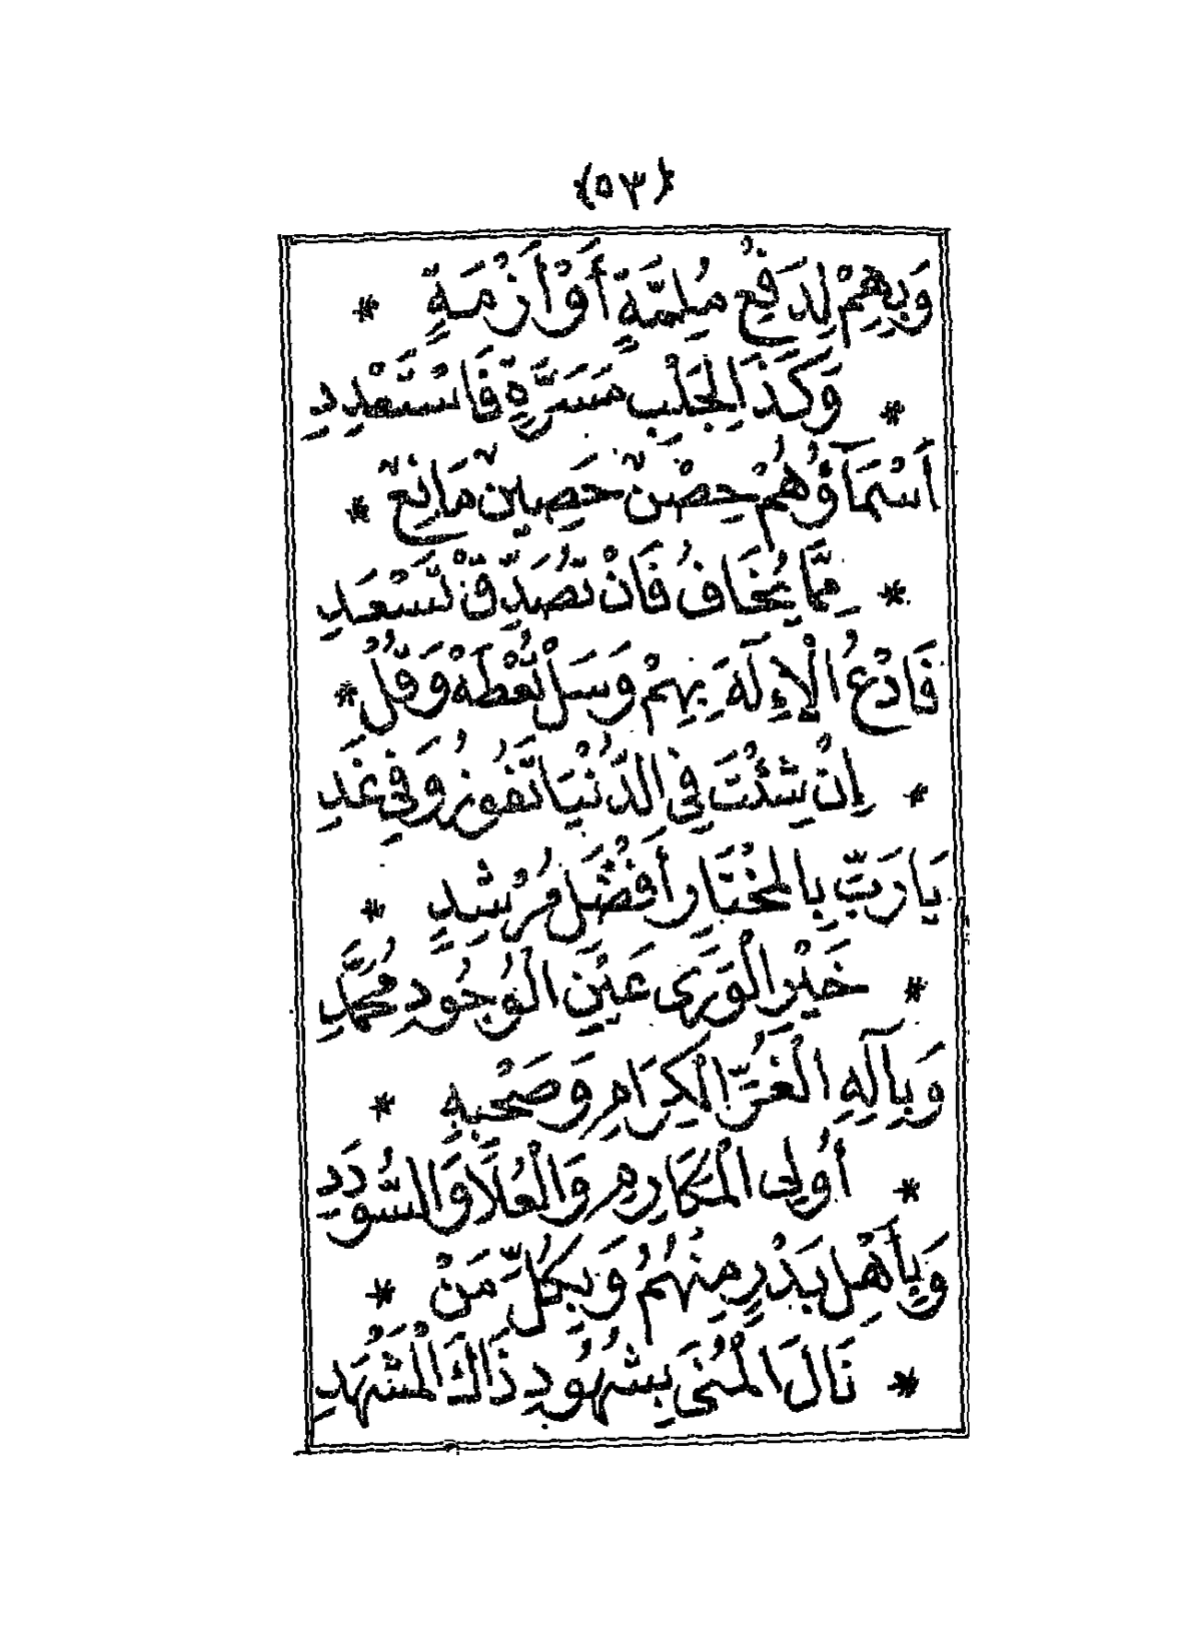 ﴿٥٣﴾
وَبِهِمْ لِدَفْعِ مُلِمَّةٍ أَوْ أَزْمَةٍ *
* وَكَذَا لِجَلْبِ مَسَرَّةٍ فَاسْتَعْدِدِ
اَسْمَآؤُهُمْ حِصْنٌ حَصِينٌ مَانِعٌ *
* مِمَّا يُخَافُ فَاِنْ تُصَدِّقْ تَسْعَدِ
فَادْعُ الْإِلَهَ بِهِمْ وَسَلْ تُعْطَهْ وَقُلْ *
* اِنْ شِئْتَ فِي الدُّنْيَا تَفُوزُ وَفِي غَدِ
يَارَبِّ بِالمُخْتَارِ أَفْضَلِ مُرْشِدٍ *
* خَيْرِ الْوَرَى عَيْنِ الْوُجُودِ مُحَمَّدِ
وَبِآلِهِ الْغُرِّ الْكِرَامِ وَصَحْبِهِ *
* أُولِى الْمَكَارِمِ وَالْعُلَا وَالسُّودَدِ
وَبِأَهْلِ بَدْرٍ مِنْهُمُ وَبِكُلِّ مَنْ *
* نَالَ الْمُنَى بِشُهُودِ ذَاكَ الْمَشْهَدِ